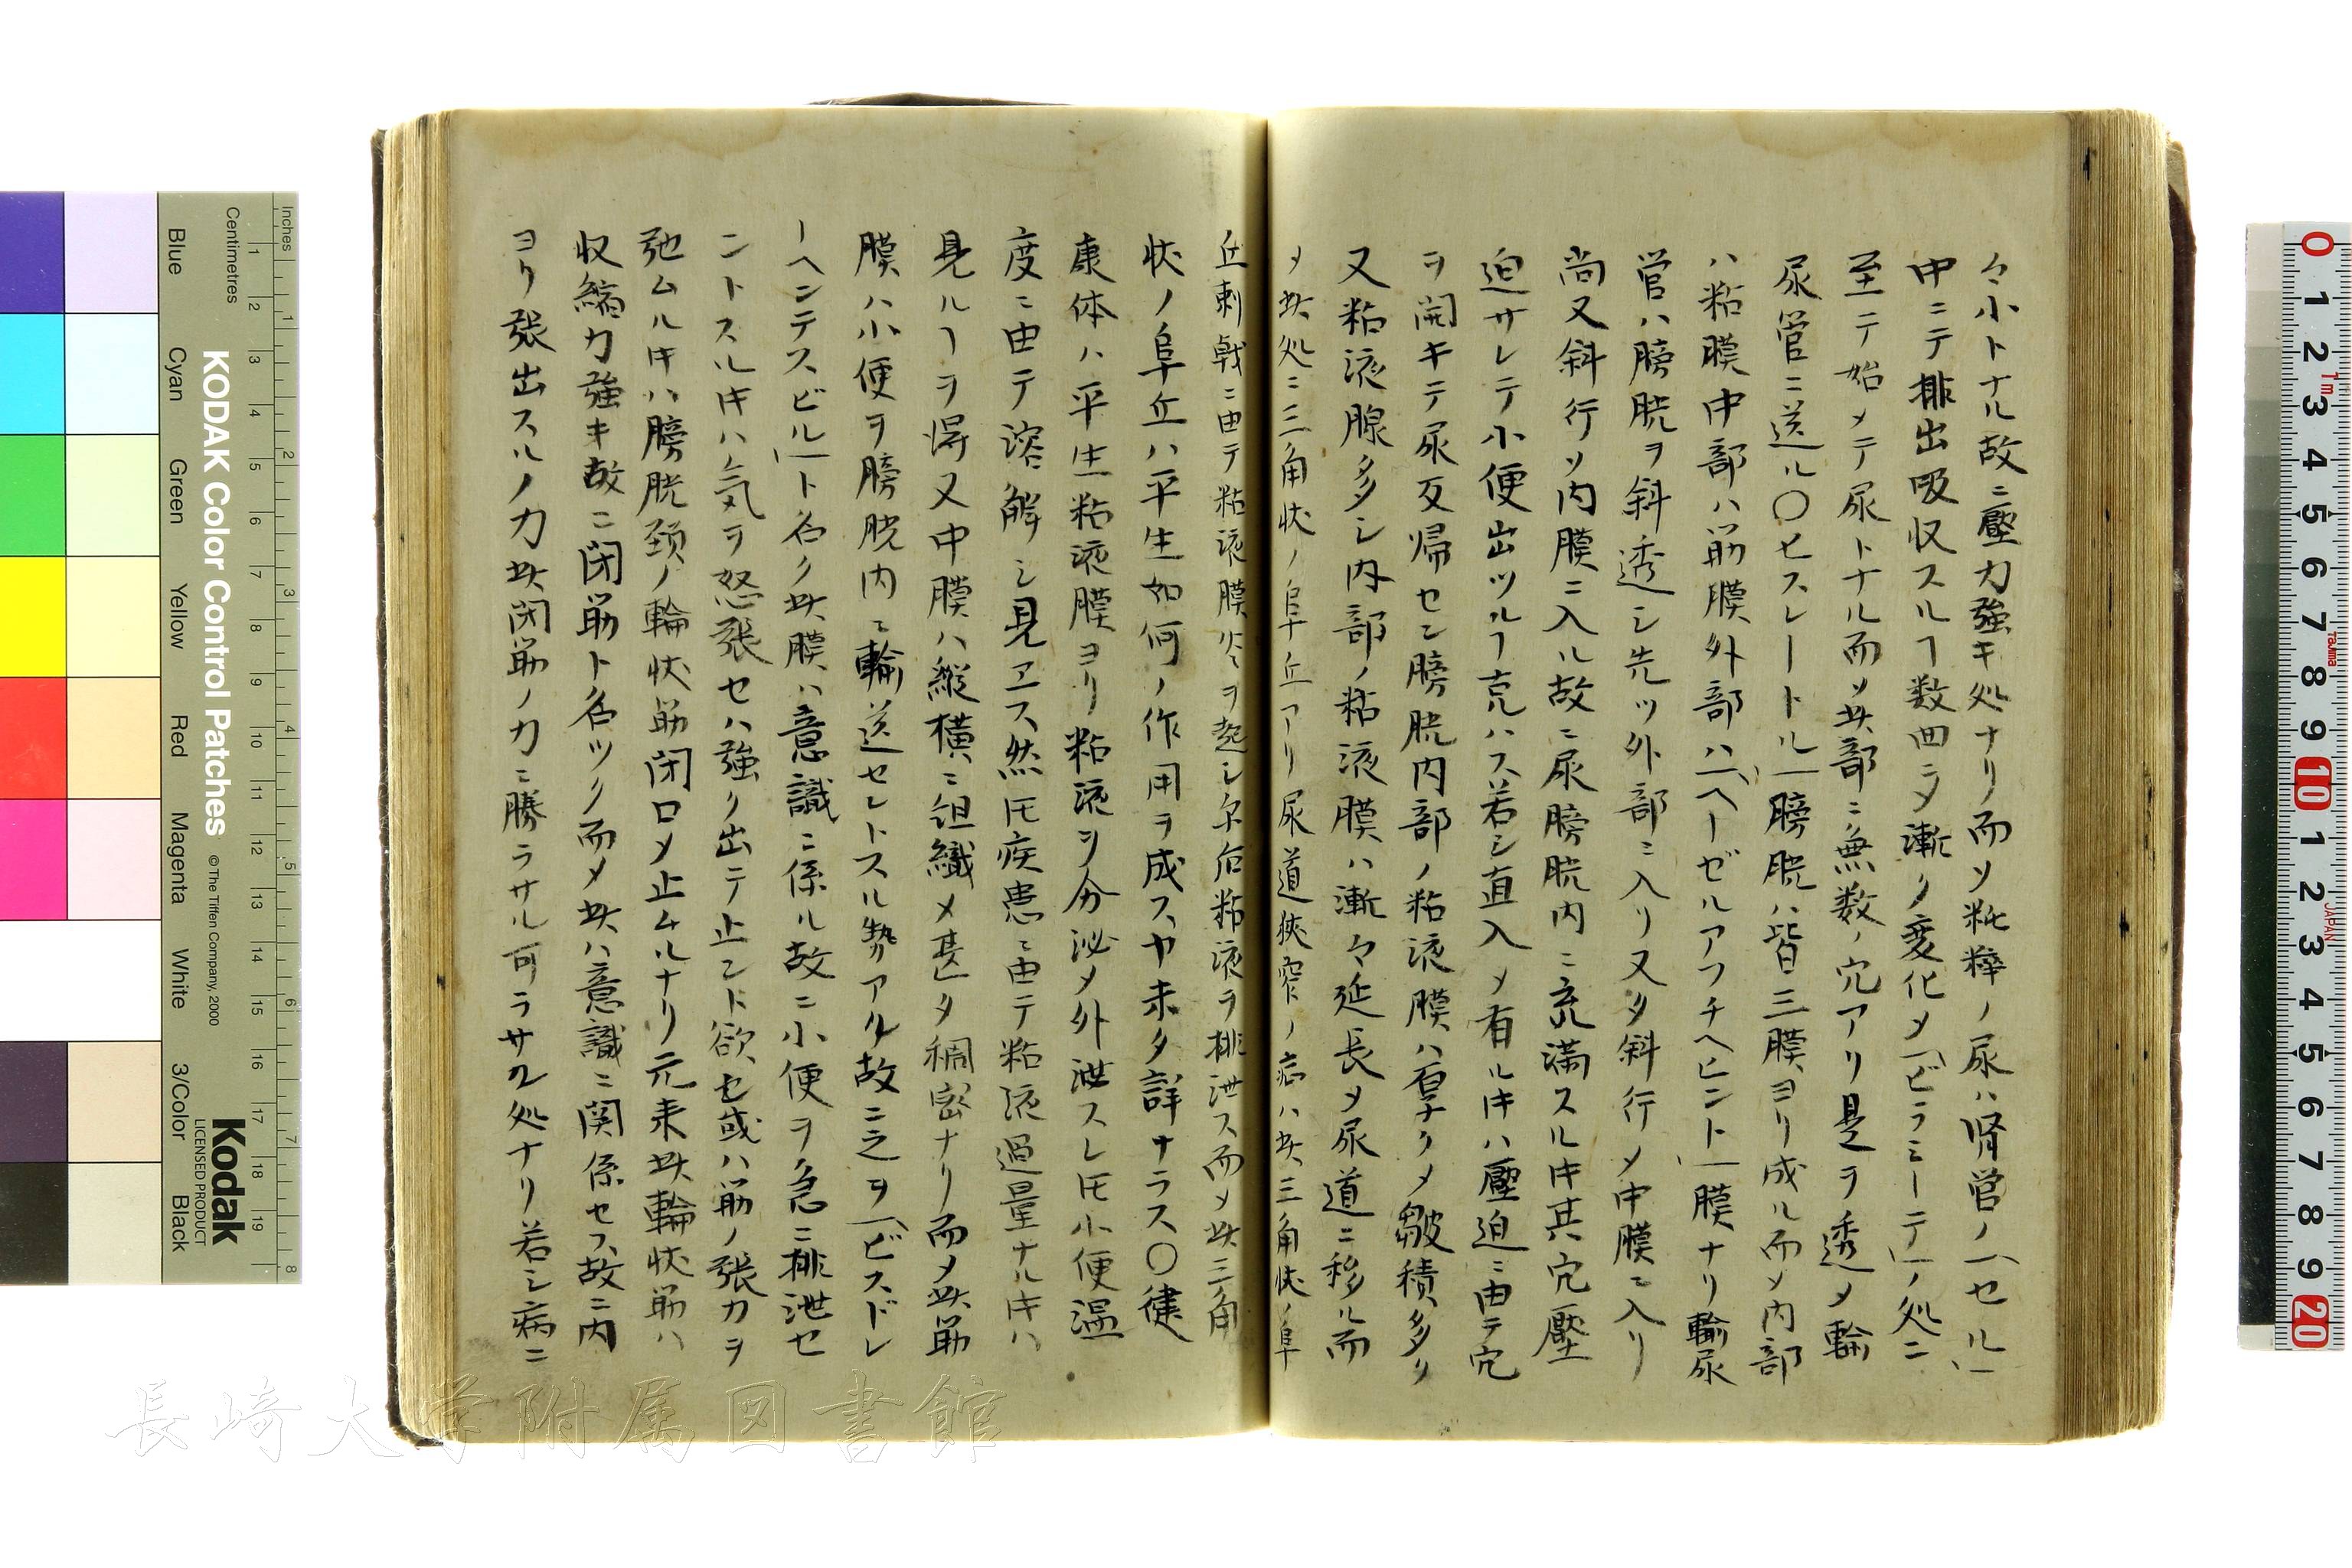 々小トナル故ニ壓力強キ処ナリ而ソ粃粹ノ尿ハ腎管ノ「セル」
中ニテ排出吸収スルヿ数回ニ乄漸ク変化メ「ピラミーデ」ノ処ニ
至テ始メテ尿トナル而ソ此部ニ無数ノ穴アリ是ヲ透メ輸
尿管ニ送ル〇セスレートル」膀胱ハ皆三膜ヨリ成ル而メ内部
ハ粘膜中部ハ筋膜外部ハ「ヘーゼルアフチヘヒント」膜ナリ輸尿
管ハ膀胱ヲ斜透シ先ツ外部ニ入リ又タ斜行メ中膜ニ入リ
尚又斜行ソ内膜ニ入ル故ニ尿膀胱内ニ充満スル𪜈其穴壓
迫サレテ小便出ツルヿ克ハス若シ直入メ有ル𪜈ハ壓迫ニ由テ穴
ヲ開キテ尿反帰セン膀胱内部ノ粘液膜ハ厚クメ皺積多リ
又粘液腺多シ内部ノ粘液膜ハ漸々延長メ尿道ニ移ル而
メ此処ニ三角状ノ阜丘アリ尿道狭窄ノ症ハ此三角状ノ阜
丘刺戟ニ由テ粘液膜炎ヲ起シ尓后粘液ヲ排泄ス而メ此三角
状ノ阜丘ハ平生如何ノ作用ヲ成スヤ未タ詳ナラス〇健
康体ハ平生粘液膜ヨリ粘液ヲ分泌メ外泄スレ𪜈小便温
度ニ由テ溶解シ見エス然𪜈疾患ニ由テ粘液過量ナルキハ
見ルヿヲ得又中膜ハ縦横ニ組織メ甚タ稠密ナリ而メ此筋
膜ハ小便ヲ膀胱内ニ輸送セントスル勢アル故ニ之ヲ「ビスドレ
ーヘンテスビル」ト名ク此膜ハ意識ニ係ル故ニ小便ヲ急ニ排泄セ
ントスルキハ気ヲ怒張セハ強ク出テ止ント欲セ或ハ筋ノ張力ヲ
弛ムルキハ膀胱頚ノ輪状筋閉口メ止ムルナリ元来此輪状筋ハ
収縮力強キ故ニ閉筋ト名ツク而メ此ハ意識ニ関係セス故ニ内
ヨリ張出スルノ力此閉筋ノ力ニ勝ラサル可ラサル処ナリ若シ病ニ
長崎大学附属図書館
KODAK Color Control Patches
© The Tiffen Company, 2000
Kodak
LICENSED PRODUCT
Inches
Centimetres
Blue Cyan Green Yellow Red Magenta White 3/Color Black